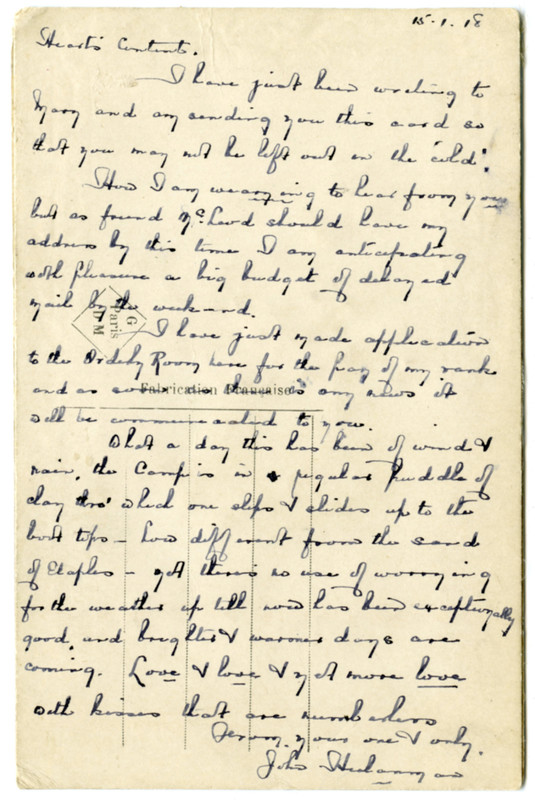 15-1.18
Heart's Content.
I have just been writing to
Mary and am sending you this card so
that you may not be left out in the 'cold'.
How I am wearying to hear from you
but as friend Mc should have my
address by this time I am anticipating
with pleasure a big budget of delayed
mail by the week-end.
G
Paris
D M
I have just made application
to the Orderly Room here for the pay of my rank
and as soon as there is any news it
Fabrication Française
will be communicated to you.
What a day this has been of wind &
rain, the Camp is in a regular puddle of
clay thro' which one slips & slides up to the
boot tops - how different from the sand
of Etaples - yet there's no use of worrying
for the weather up till now has been exceptionally
good, and brighter & warmer days are
coming. Love & love & yet more love
with kisses that are numberless
From your one & only.
John